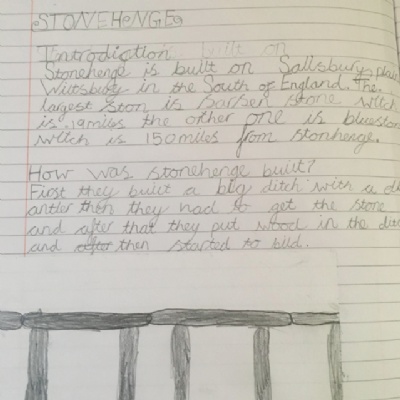 STONEHENGE
Introdiction built on
Stonehenge is built on Sallsbury plain
Wiltsbury in the South of England. The
largest ston is sarsen stone witch
is .19miles the other one is bluestone
witch is 150miles from stonhenge.
How was stonehenge built?
First they built a big ditch with a
antler then they had to get the stone
and after that they put wood in the
and after then started to bild.